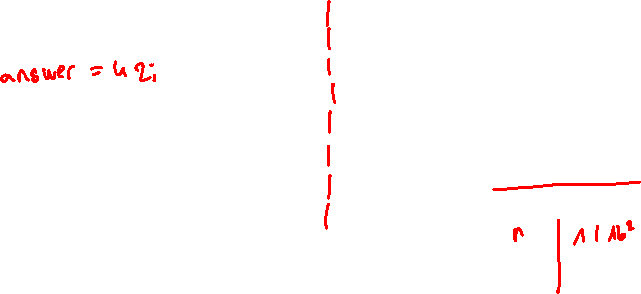 answer = 42;
n | 1 / 16²